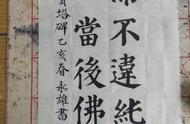 不違純
當後佛
寶塔碑乙亥春 永雄書